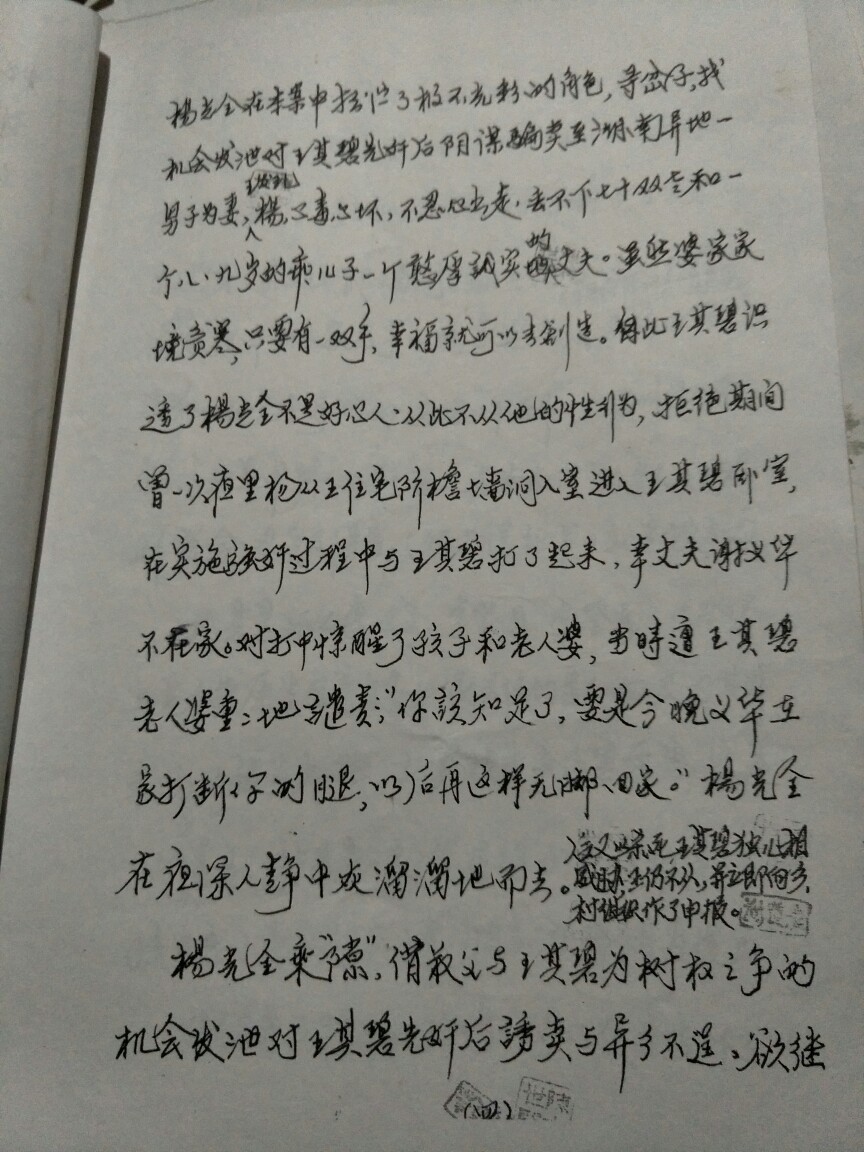 杨光全在本案中扮演了极不光彩的角色，寻岔子，找
机会发泄对王其碧先奸后阴谋骗卖至湖南异地一
男子为妻，王发现杨心毒心坏，不忍心出走，丢不下七十双老和一
个八、九岁的乖儿子一个憨厚诚实的丈夫。虽然婆家家
境贫寒，只要有一双手，幸福就可以去创造。得此王其碧识
透了杨光全不是好心人，从此不从他的性行为，拒绝期间
曾一次夜里杨从王住宅阶檐墙洞入室进入王其碧卧室，
在实施强奸过程中与王其碧打了起来，幸丈夫谢义华
不在家。对打中惊醒了孩子和老人婆，当时遭王其碧
老人婆重重地谴责："你該知足了，要是今晚义华在
家打断你的腿，以后再这样无脚回家。"杨光全
在夜深人静中灰溜溜地而去。
后又以杀死王其碧独儿相
威胁，王仍不从，并立即向乡、
村组织作了申报。
杨光全乘"隙"，借叔父与王其碧为树权之争的
机会发泄对王其碧先奸后誘卖与异乡不逞。欲继
(四)